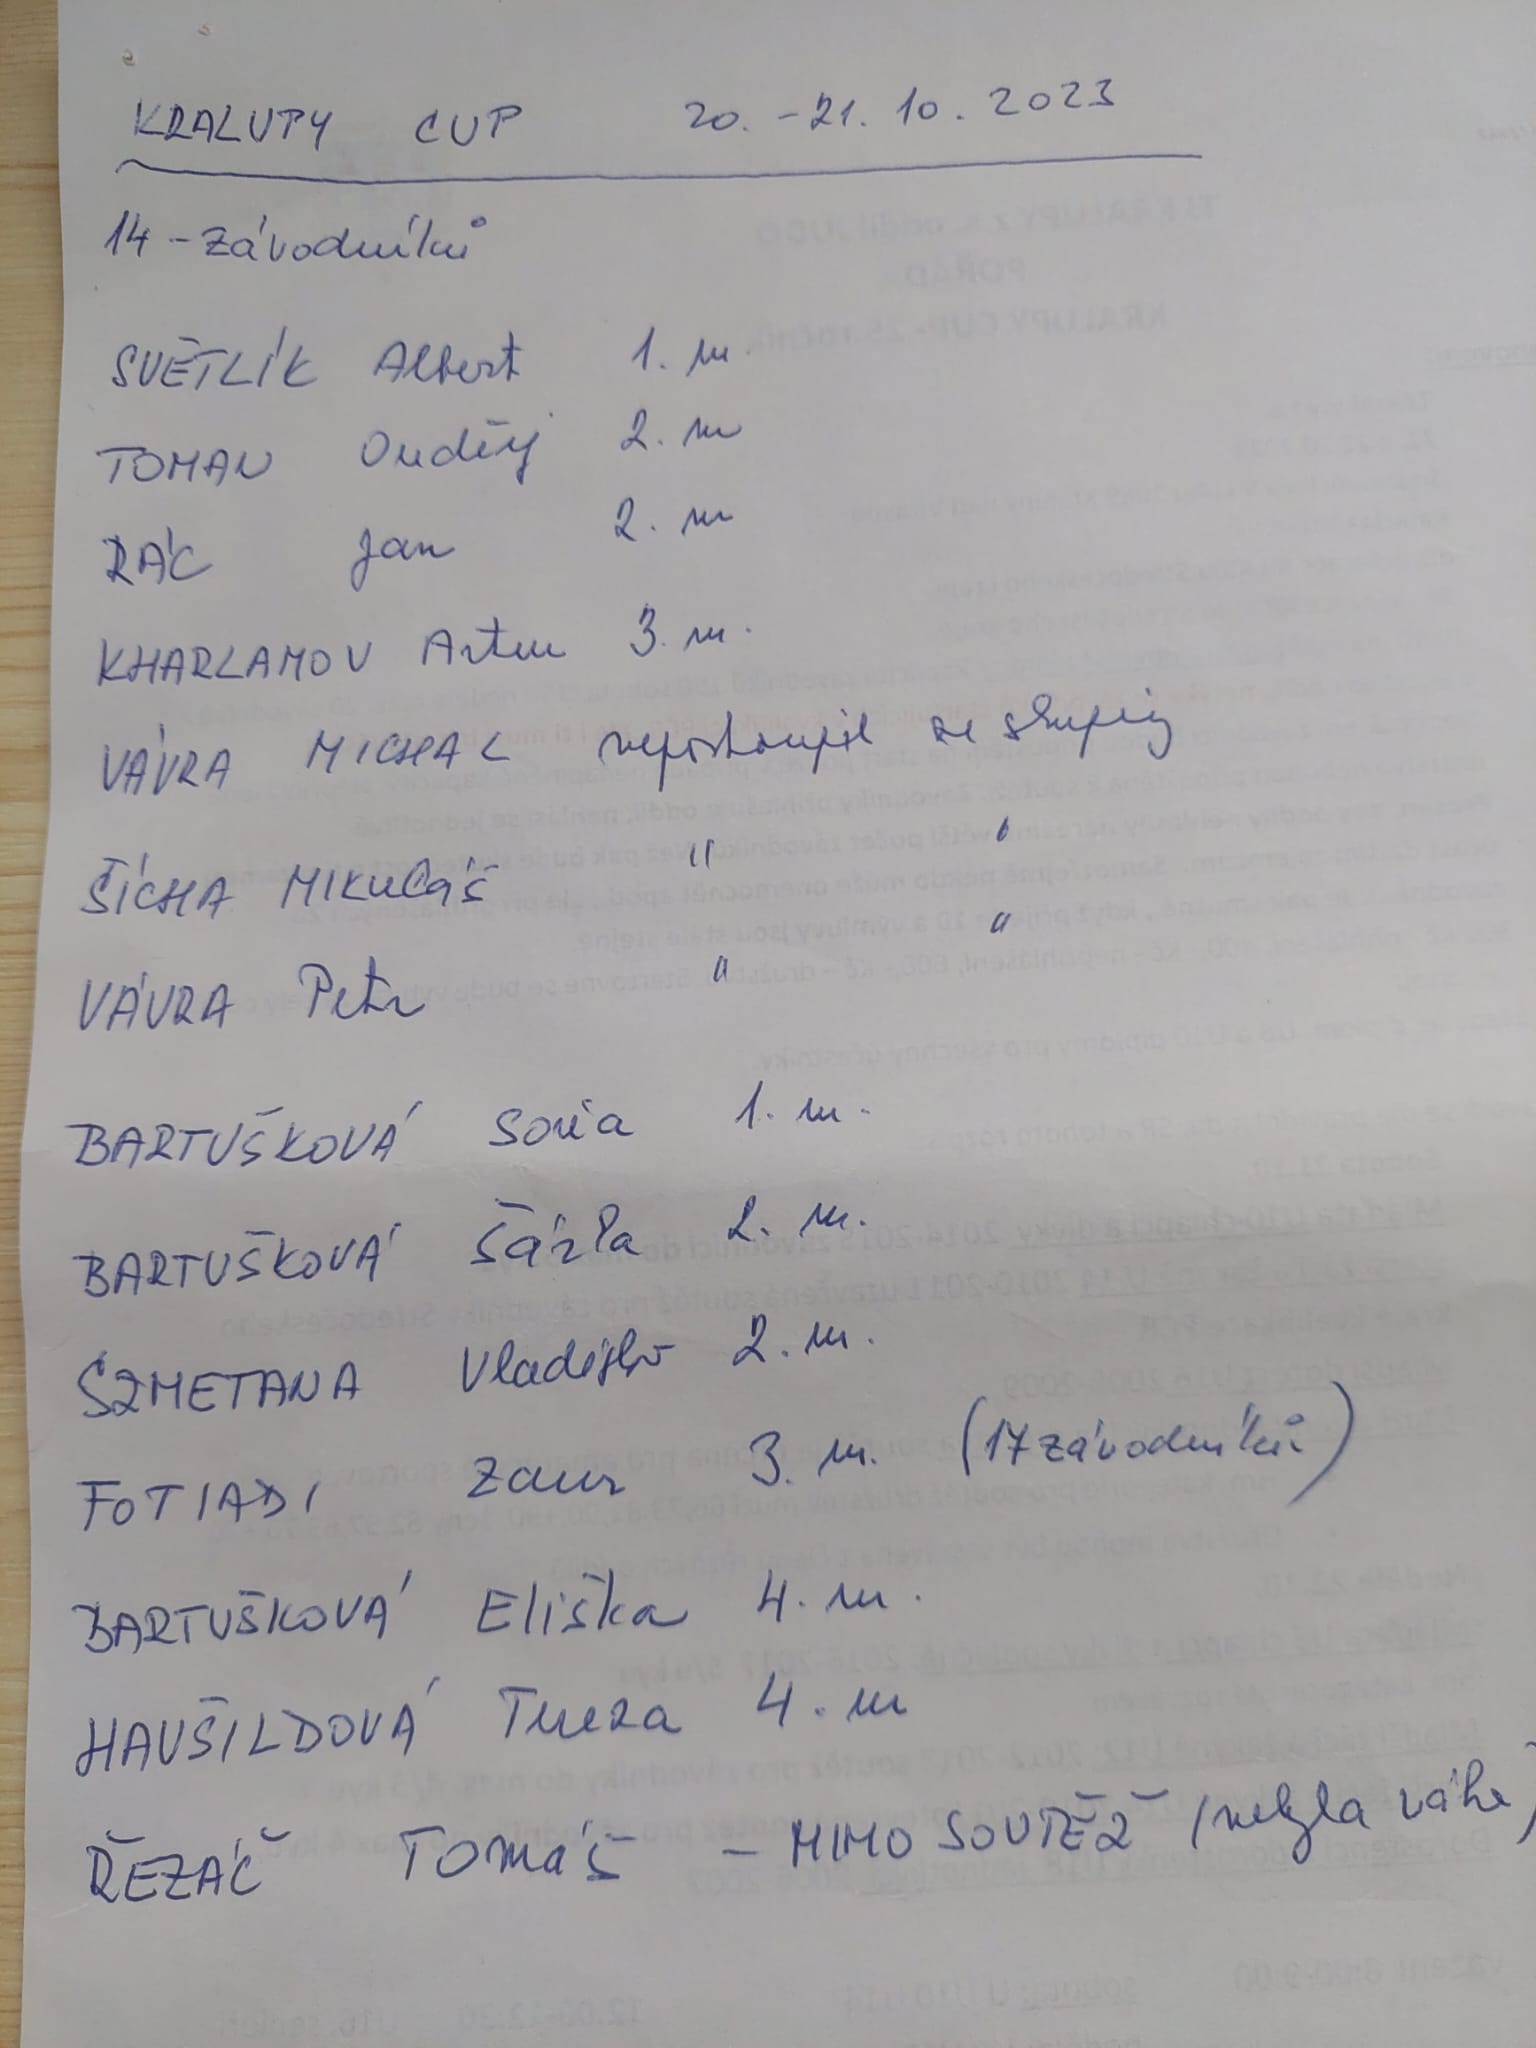 KRALUPY CUP 20. - 21. 10. 2023
14 - závodníků
SVĚTLÍK Albert 1. m.
TOMAN Ondřej 2. m
RÁC Jan 2. m
KHARLAMOV Artem 3. m.
VÁVRA MICHAL nepostoupil ze skupiny
ŠÍCHA MIKULÁŠ " "
VÁVRA Petr " "
BARTUŠKOVÁ Soňa 1. m.
BARTUŠKOVÁ Šárka 2. m.
SZMETANA Vladislav 2. m.
FOTIADI Zaur 3. m. (17 závodníků)
BARTUŠKOVÁ Eliška 4. m.
HAUŠILDOVÁ Tereza 4. m
ŘEZÁČ TOMÁŠ - MIMO SOUTĚŽ (nebyla váha)